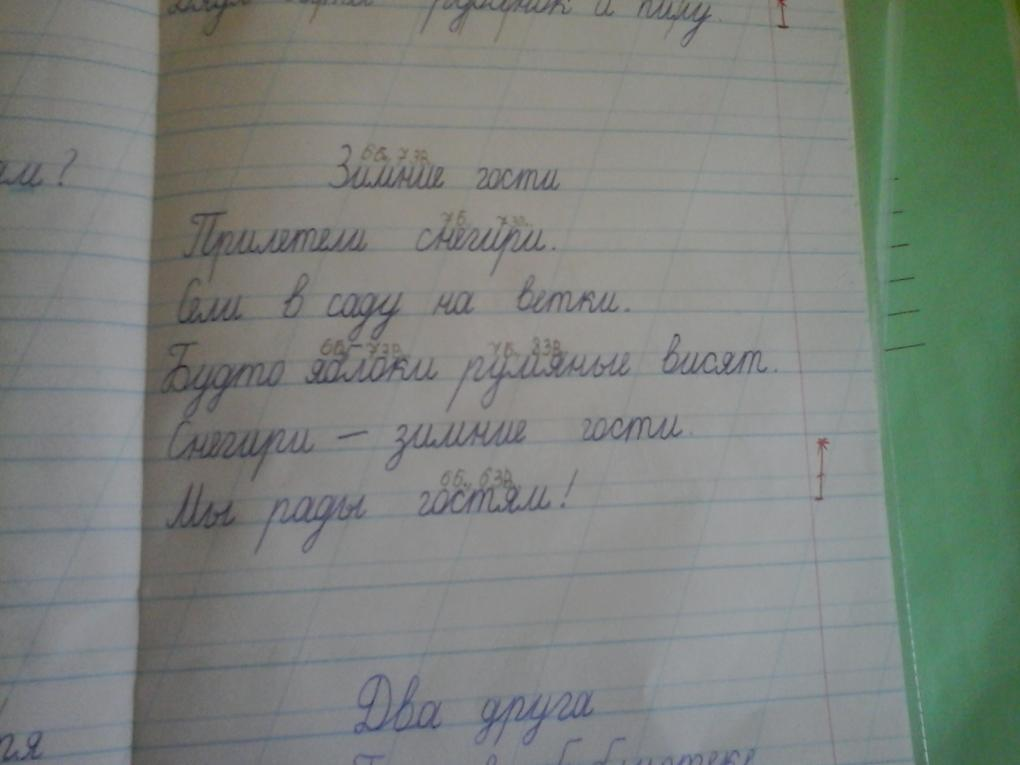 и пилу.
ям?
6б. 7зв
Зимние гости
7б. 7зв.
Прилетели снегири.
Сели в саду на ветки.
6б - 7зв 7б. 8зв
Будто яблоки румяные висят.
Снегири - зимние гости.
6б., 6зв.
Мы рады гостям!
Два друга